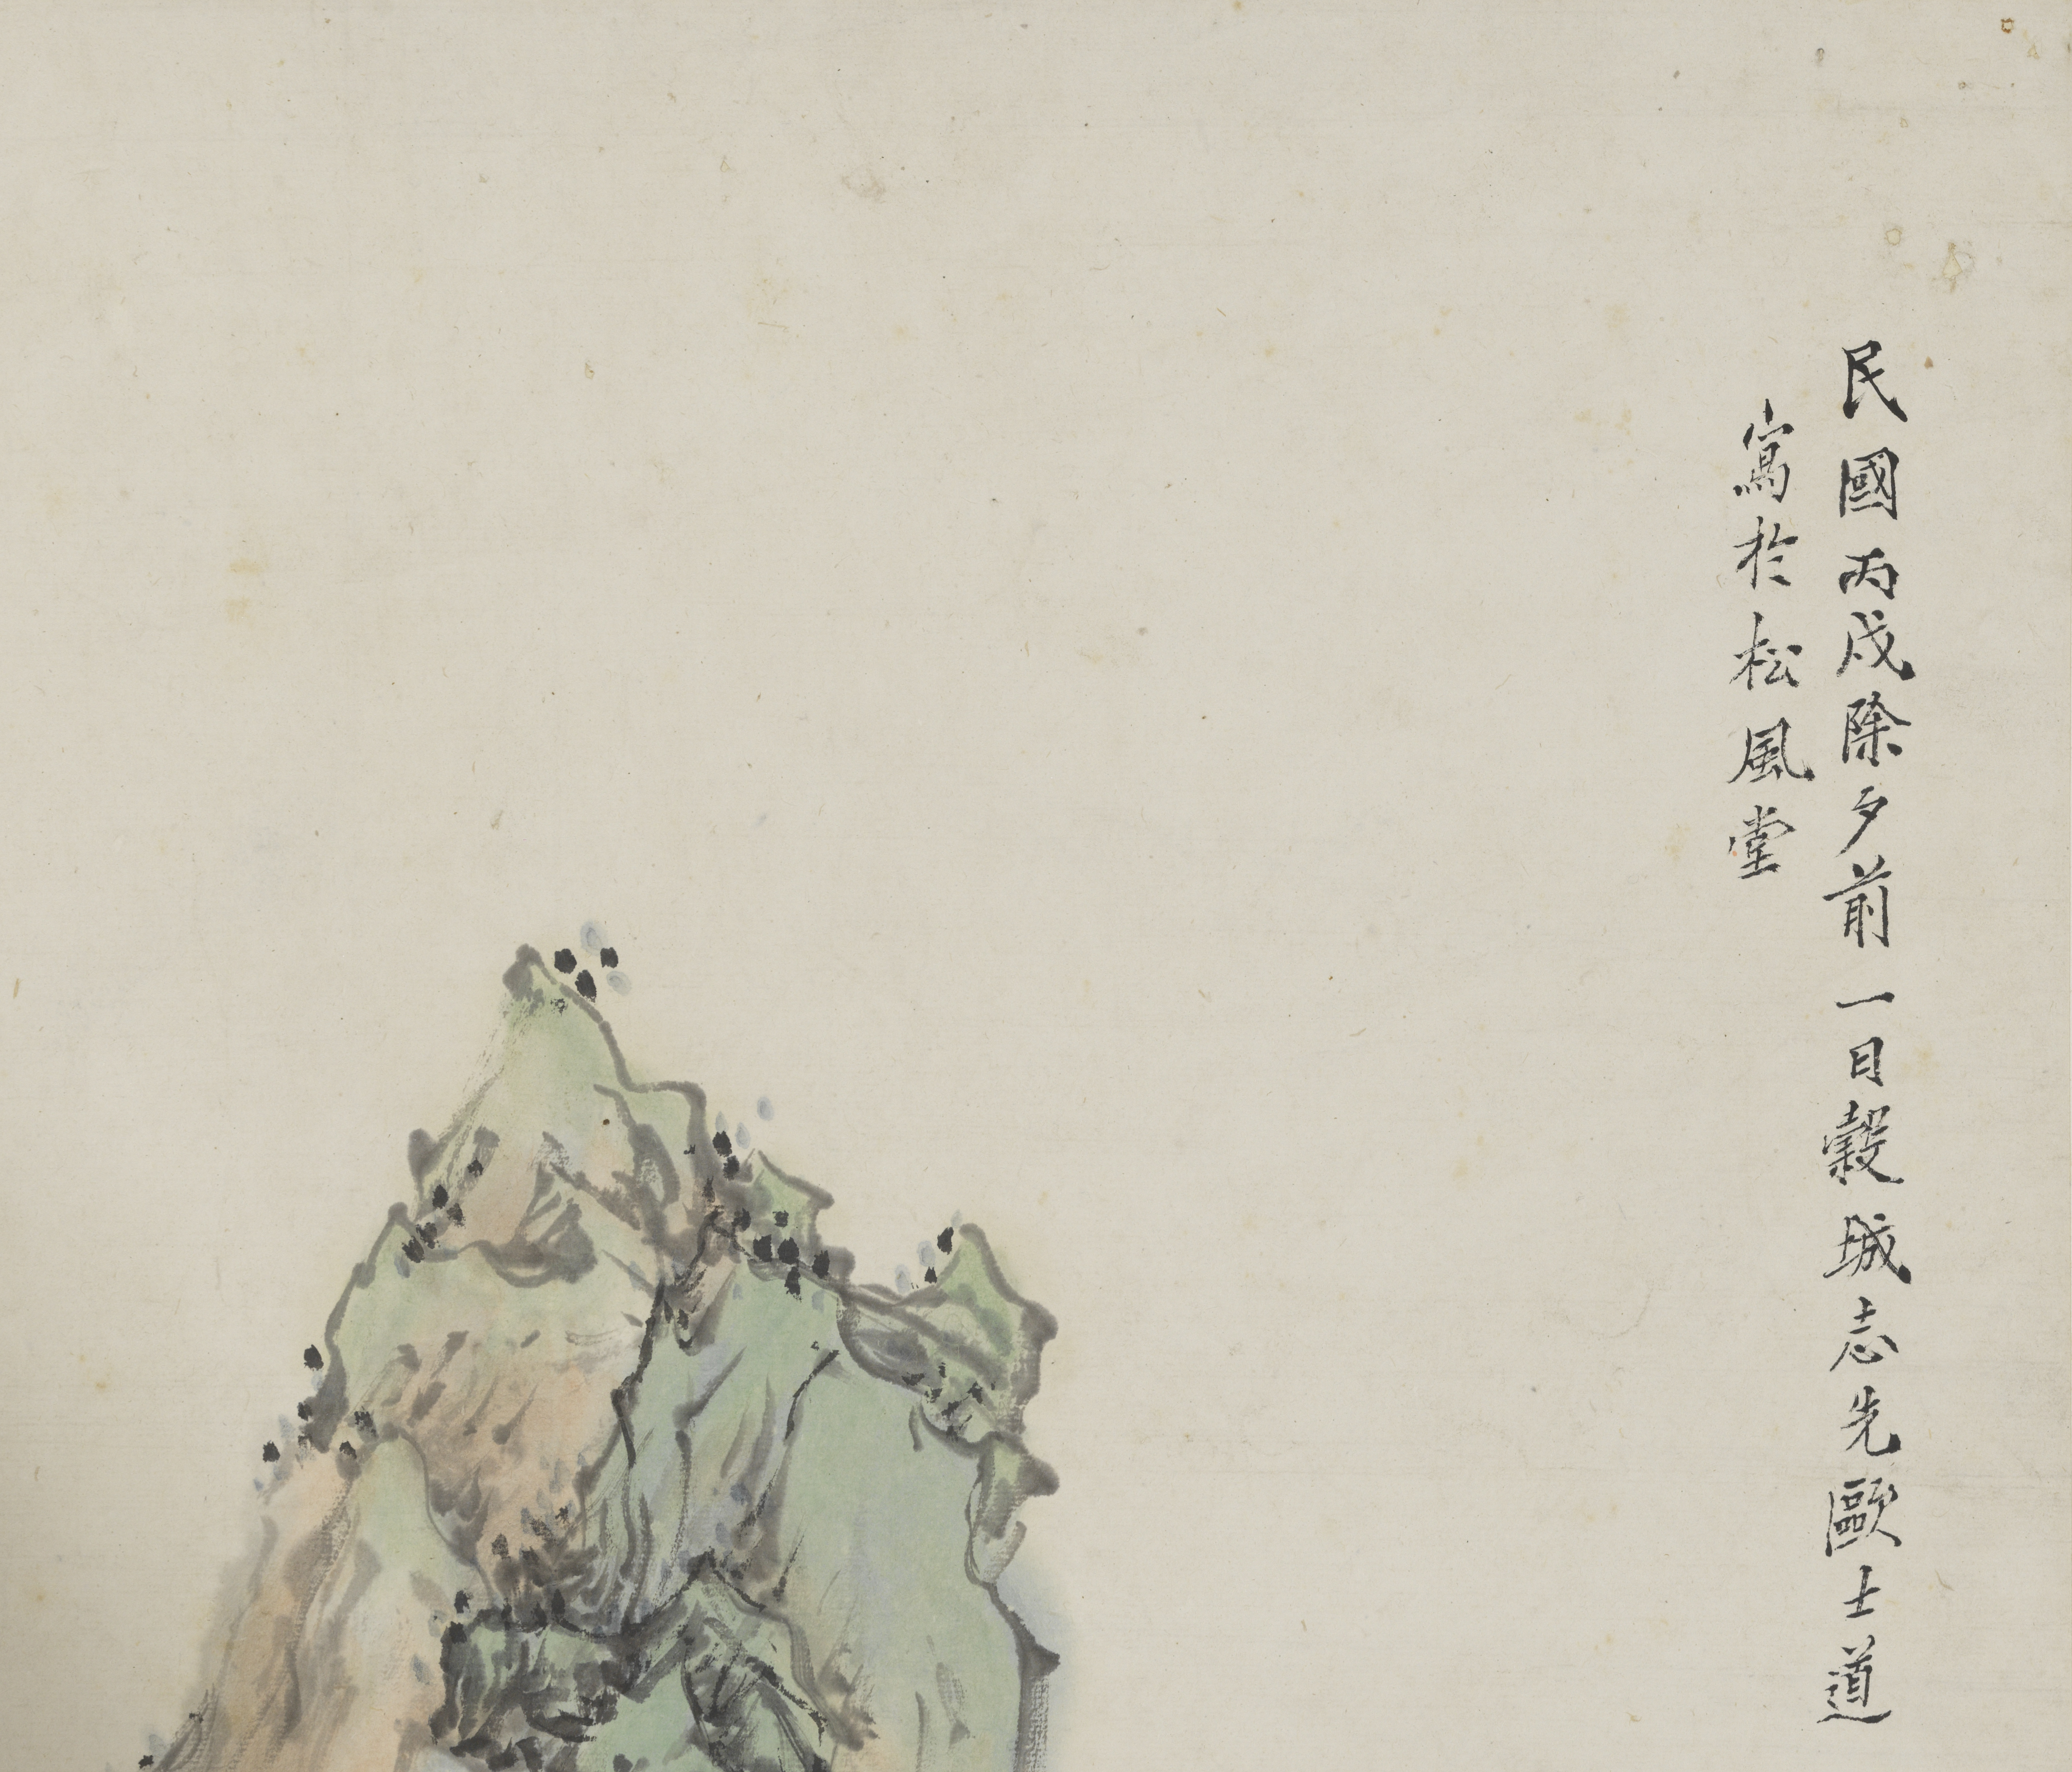 民國丙戌除夕前一日穀城志先歐士道
寫於松風堂